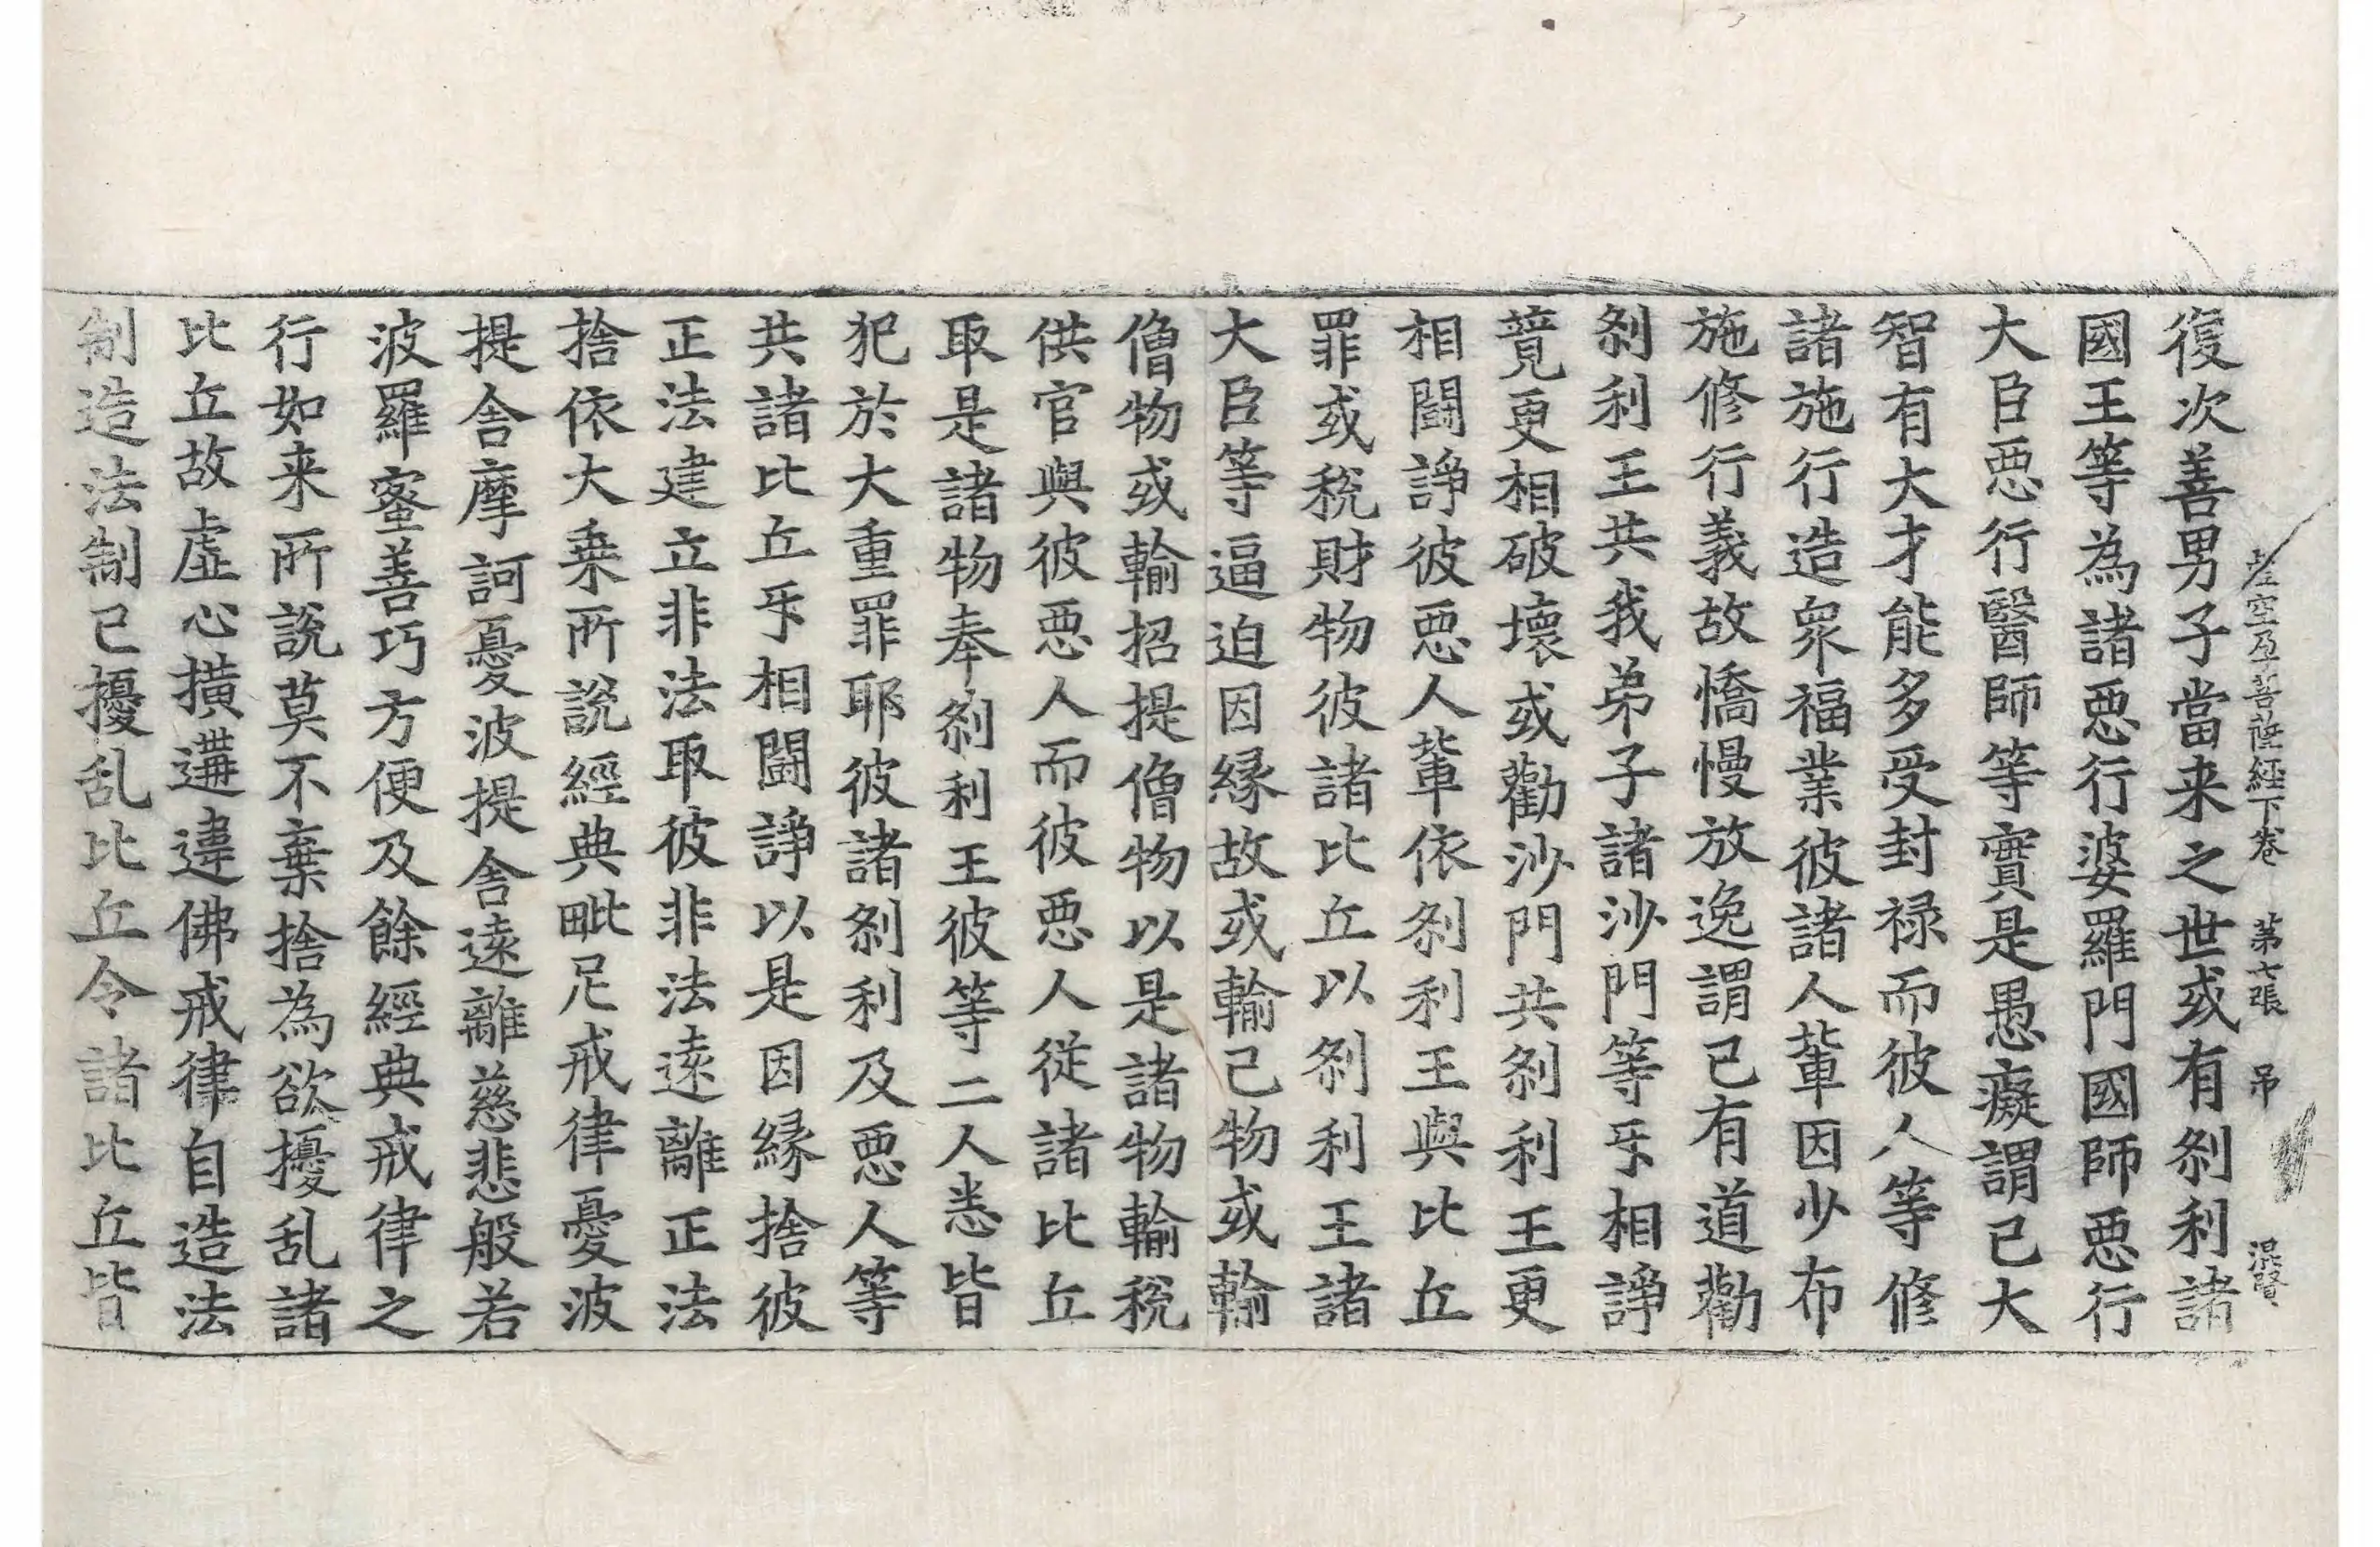 虛空孕菩薩經下卷 第七張 吊 混賢
復次善男子當来之世或有刹利諸
國王等為諸惡行婆羅門國師惡行
大臣惡行醫師等實是愚癡謂己大
智有大才能多受封禄而彼人等修
諸施行造衆福業彼諸人軰因少布
施修行義故憍慢放逸謂己有道勸
刹利王共我弟子諸沙門等㸦相諍
競更相破壞或勸沙門共刹利王更
相鬪諍彼惡人軰依刹利王與比丘
罪或稅財物彼諸比丘以刹利王諸
大臣等逼迫因縁故或輸己物或輸
僧物或輸招提僧物以是諸物輸稅
供官與彼惡人而彼惡人從諸比丘
取是諸物奉刹利王彼等二人悉皆
犯於大重罪耶彼諸刹利及惡人等
共諸比丘㸦相鬪諍以是因縁捨彼
正法建立非法取彼非法遠離正法
捨依大乗所說經典毗尼戒律憂波
提舍摩訶憂波提舍遠離慈悲般若
波羅蜜善巧方便及餘經典戒律之
行如来所說莫不棄捨為欲擾乱諸
比丘故虛心撗遘違佛戒律自造法
制造法制已擾乱比丘令諸比丘皆